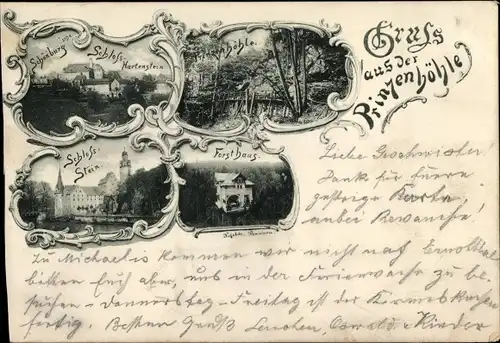 Gruss
aus der
Prinzenhöhle
Schloss
Hartenstein
Prinzenhöhle.
Schloss
Stein.
Forsthaus.
Liebe Geschwister!
Dank für Euere
gestrige Karte,
anbei Revanche!
Zu Michaelis kommen wir nicht nach Ernstthal
bitten Euch aber, uns in der Ferienwoche zu be
suchen - Donnerstag - Freitag ist der Kirmeskuchen
fertig. Besten Gruß Lenchen, Oswald & Kinder